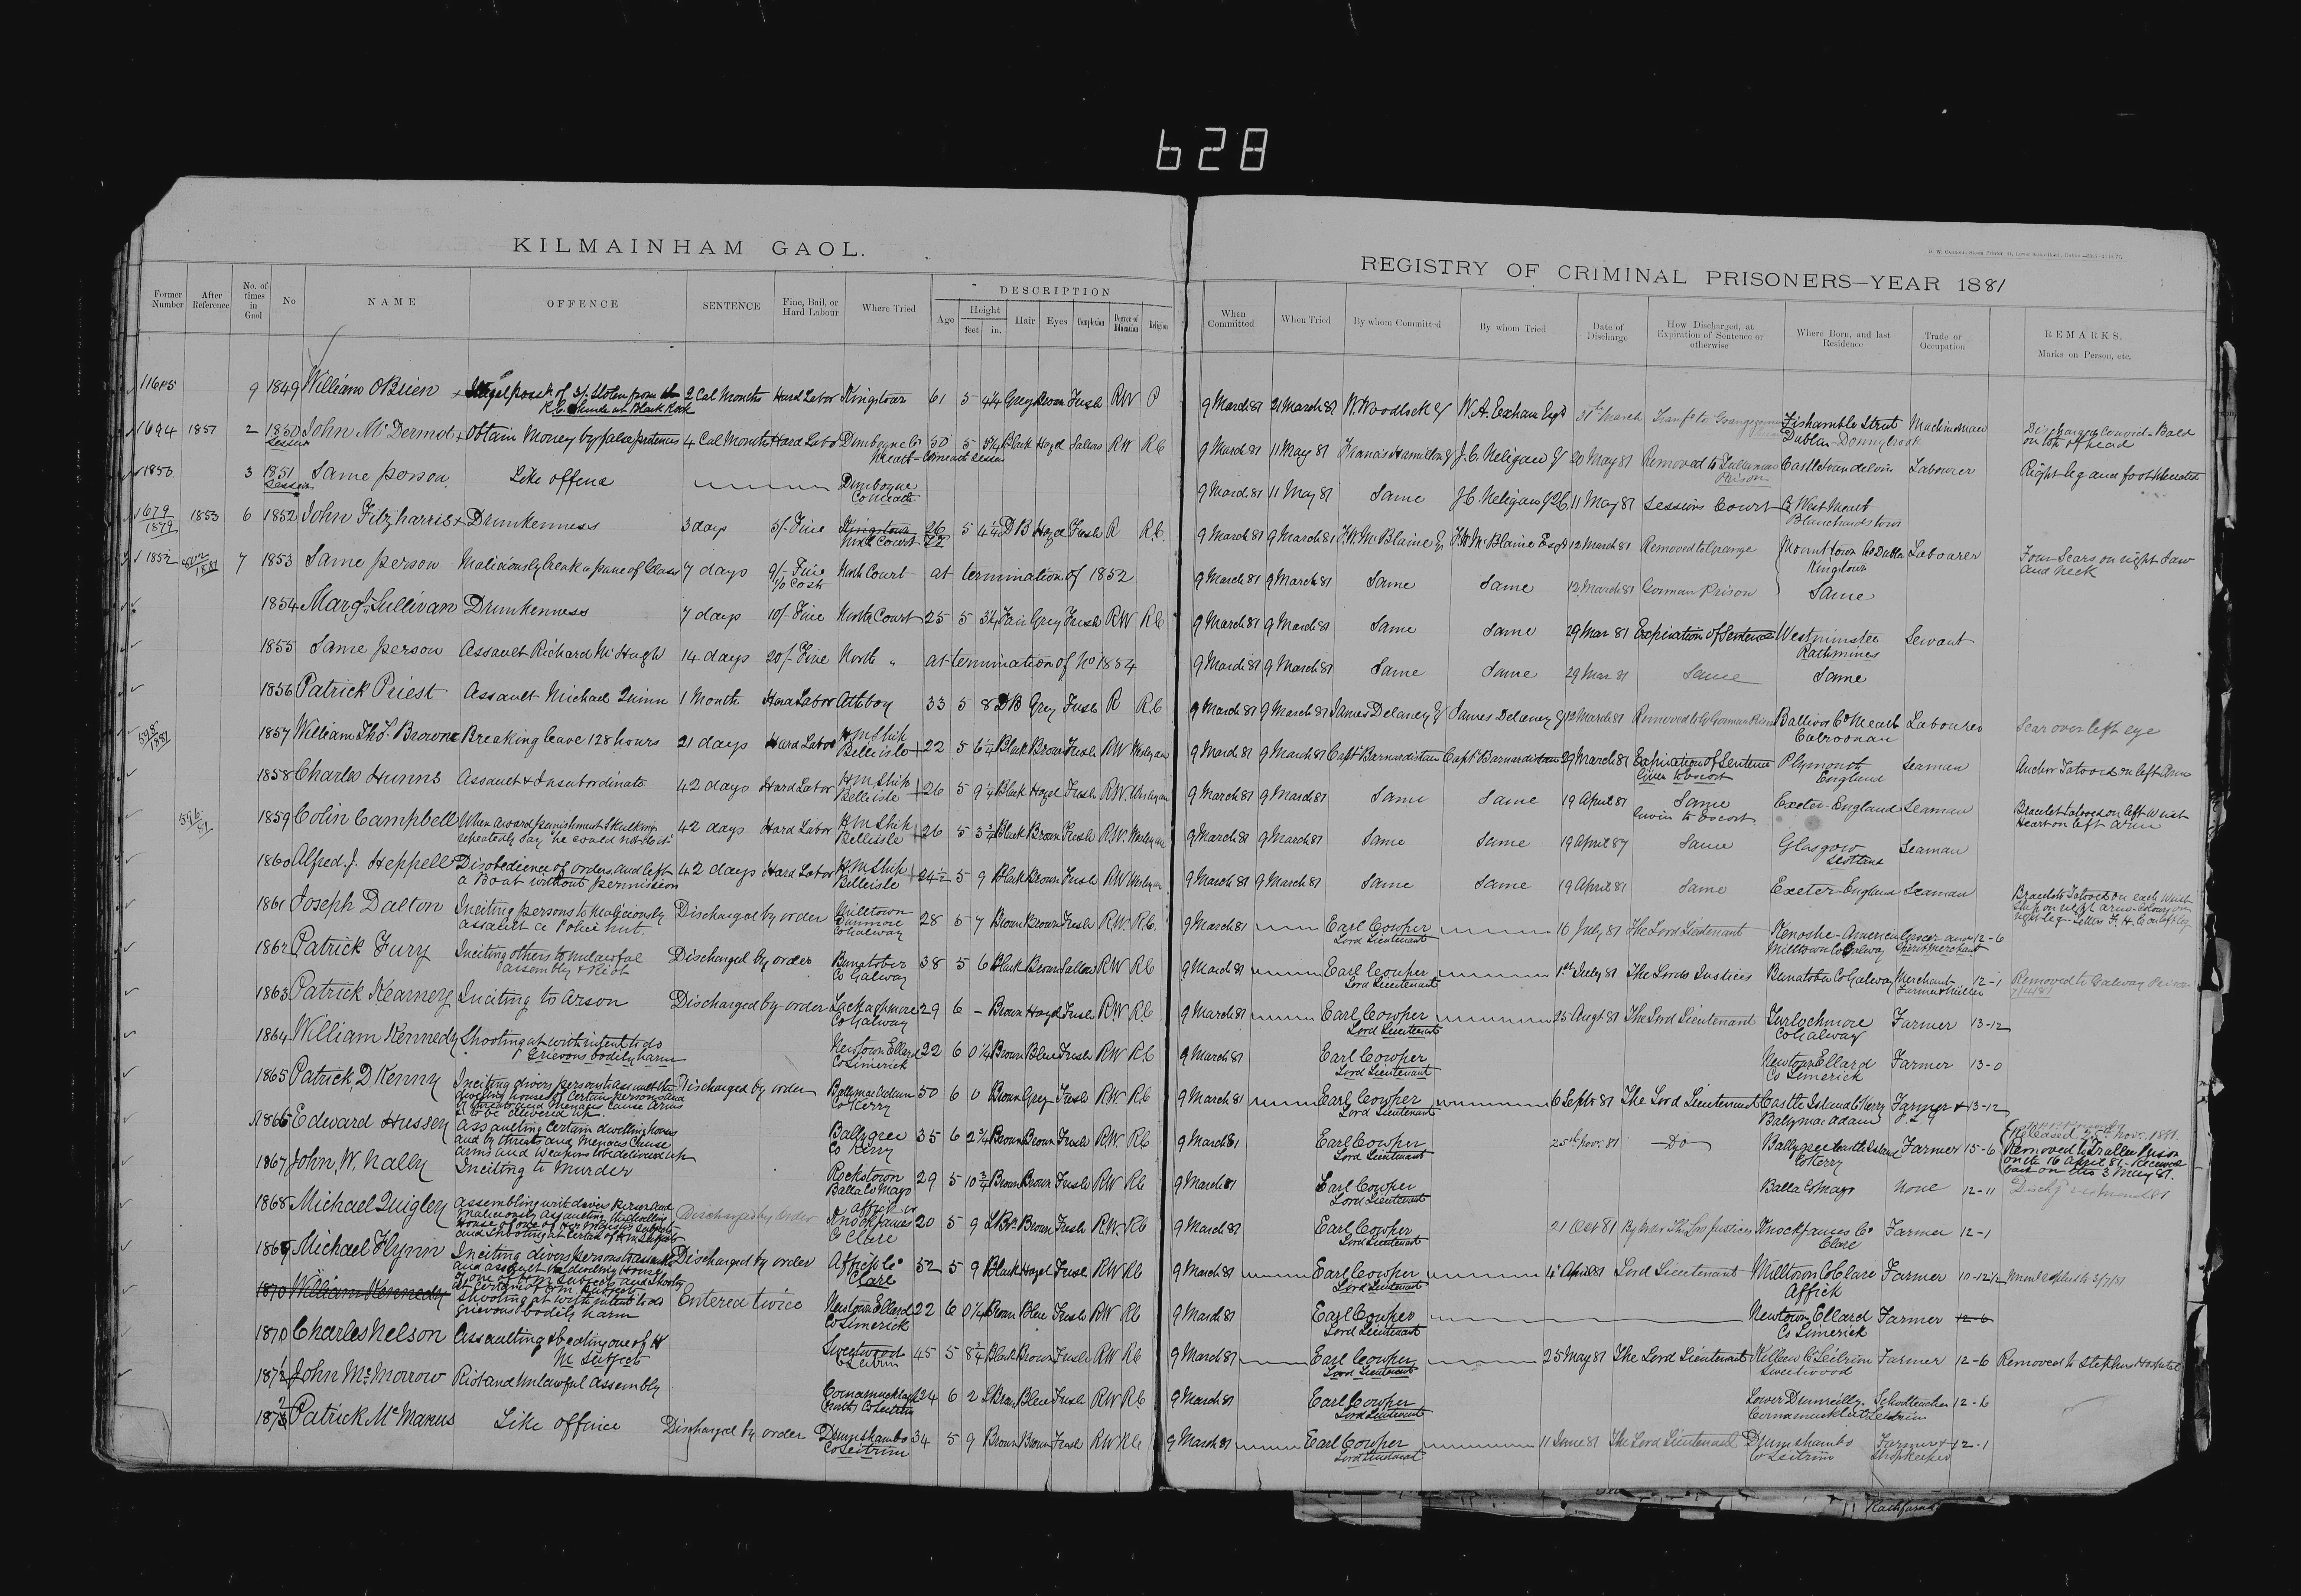 628
KILMAINHAM GAOL.
REGISTRY OF CRIMINAL PRISONERS—YEAR 1881
Former Number After Reference No. of times in Gaol No NAME OFFENCE SENTENCE Fine, Bail, or Hard Labour Where Tried DESCRIPTION Age Height feet in. Hair Eyes Complexion Degree of Education Religion When Committed When Tried By whom Committed By whom Tried Date of Discharge How Discharged, at Expiration of Sentence or otherwise Where Born, and last Residence Trade or Occupation REMARKS. Marks on Person, etc.
9 1849 William OBrien of 3/- Stolen from 2 Cal Months Hard Labor Kingstown 61 5 4¼ Grey Brown Fresh RW P 9 March 81 21 March 81 W. Woodlock W. A. Exham Esqr 31st March Fishamble Street Machineman
Dublin Donnybrook
1694 1857 2 1850 John McDermot Obtain Money by false pretences 4 Cal Months Hard Labor Dunboyne Co Meath 50 5 Black Hazel Sallow RW RC 9 March 81 11 May 81 Francis Hamilton J. C. Neligan 20 May 81 Removed to Tullamore Prison Labourer Right leg and foot
on top of head
1853 3 1851 Same person Like offence Dunboyne Co Meath 9 March 81 11 May 81 Same J.C. Neligan 11 May 81 Sessions Court Co West Meath
Blanchardstown
1679/1879 1853 6 1852 John Fitzharris Drunkenness 3 days 5/- Fine North Court 5 4¼ DB Hazel Fresh R R.C. 9 March 81 9 March 81 12 March 81 Removed to Grange Co Dublin Labourer Four Scars on right Jaw and neck
Kingstown
1852 7 1853 Same person Maliciously break a pane of Glass 7 days 9/- Fine 1/0 Cost North Court at termination of 1852 9 March 81 9 March 81 Same Same 12 March 81 Gorman Prison Same
1854 Margt Sullivan Drunkenness 7 days 10/- Fine North Court 25 5 3¼ Fair Grey Fresh RW RC 9 March 81 9 March 81 Same Same 29 Mar 81 Expiration of Sentence Westminster Rathmines Servant
1855 Same person Assault Richard McHugh 14 days 20/- Fine North " at termination of No 1854 9 March 81 9 March 81 Same Same 29 Mar 81 Same Same
1856 Patrick Priest Assault Michael Quinn 1 Month Hard Labor Athboy 33 5 8 DB Grey Fresh R R.C 9 March 81 9 March 81 James Delaney James Delaney 12 March 81 Balivor Co Meath Labourer Scar over left eye
1857 William Thos. Browne Breaking leave 128 hours 21 days Hard Labor H.M Ship Belleisle 22 5 6¼ Black Brown Fresh RW Wesleyan 9 March 81 9 March 81 Captn Barnardiston Captn Barnardiston 29 March 81 Expiration of Sentence Given to Escort Plymouth England Seaman Anchor Tatooed on left Arm
1858 Charles Hunns Assault & Insubordinate 42 days Hard Labor H.M Ship Belleisle 26 5 9¼ Black Hazel Fresh R.W. Wesleyan 9 March 81 9 March 81 Same Same 19 April 81 Same Given to Escort Exeter England Seaman Bracelet tatooed on left Wrist Heart on left arm
1859 Colin Campbell When award punishment Skulking repeatedly say "he could not do it" 42 days Hard Labor H.M Ship Belleisle 26 5 3¾ Black Brown Fresh R.W. Wesleyan 9 March 81 9 March 81 Same Same 19 April 87 Same Glasgow Scotland Seaman
1860 Alfred. J. Heppell Disobedience of orders and left a Boat without permission 42 days Hard Labor H.M Ship Belleisle 24½ 5 9 Black Brown Fresh RW Wesleyan 9 March 81 9 March 81 Same Same 19 April 81 Same Exeter England Seaman Bracelets Tatooed on each Wrist
1861 Joseph Dalton Inciting persons to Maliciously assault a Police hut Discharged by order Milltown Dunmore Co Galway 28 5 7 Brown Brown Fresh R.W. R.C. 9 March 81 Earl Cowper Lord Lieutenant 16 July 81 The Lord Lieutenant Kenoshe America Milltown Co Galway Grocer and Spirit Merchant 12-6
1862 Patrick Fury Inciting others to unlawful assembly & Riot Discharged by order Bunatober Co Galway 38 5 6 Black Brown Sallow RW RC 9 March 81 Earl Cowper Lord Lieutenant 1st July 81 The Lords Justices Bunatober Co Galway Merchant Farmer & Miller 12-1 Removed to Galway Prison
1863 Patrick Kearney Inciting to Arson Discharged by order Lackaghmore Co Galway 29 6 - Brown Hazel Fresh R.W R.C 9 March 81 Earl Cowper Lord Lieutenant 25 Augt 81 The Lord Lieutenant Turlochmore Co Galway Farmer 13-12
1864 William Kennedy Shooting at with intent to do Grievous bodily harm Newtown Ellard Co Limerick 22 6 0¼ Brown Blue Fresh RW RC 9 March 81 Earl Cowper Lord Lieutenant Newtown Ellard Co Limerick Farmer 13-0
1865 Patrick D Kenny Inciting divers persons to assault the dwelling houses of certain persons and by threats and Menaces Cause Arms to be delivered up. Discharged by order Ballymacadam Co Kerry 50 6 0 Brown Grey Fresh RW. RC 9 March 81 Earl Cowper Lord Lieutenant 6 Septr 81 The Lord Lieutenant Castle Island Co Kerry Ballymacadam Farmer 13-12
1866 Edward Hussey Assaulting Certain dwelling houses and by threats and Menaces Cause arms and Weapons to be delivered up Co Kerry 35 6 2¾ Brown Brown Fresh RW. RC 9 March 81 Earl Cowper Lord Lieutenant 25th Nov. 81 Do Co Kerry Farmer 15-6 Released 25th Nov. 1881. Removed to Tralee Prison on the 16 April 81 - Received back on the 3 May 81.
1867 John, W. Nally Inciting to Murder Rockstown Balla Co Mayo 29 5 10¾ Brown Brown Fresh RW RC 9 March 81 Earl Cowper Lord Lieutenant Balla Co Mayo None 12-11
1868 Michael Quigley Assembling with divers Persons and Maliciously Assaulting the dwelling House of one of Her Majestys Subjects and Shooting at Certain of H.M. Subjects Discharged by Order Affick or Knockfaune Co Clare 20 5 9 L Br. Brown Fresh R.W. RC 9 March 81 Earl Cowper Lord Lieutenant 21 Oct 81 By Order The Lords Justices Co Clare Farmer 12-1
1869 Michael Flynn Inciting divers persons to assemble and assault the dwelling House of one of H.M Subjects and Shooting at Certain of H.M. Subjects Discharged by order Affick Co Clare 52 5 9 Black Hazel Fresh RW RC 9 March 81 Earl Cowper Lord Lieutenant Lord Lieutenant Milltown Co Clare Affick Farmer 10-12½
1870 William Kennedy Shooting at with intent to do grievous bodily harm Entered twice Newtown Ellard Co Limerick 22 6 0¼ Brown Blue Fresh RW RC 9 March 81 Earl Cowper Lord Lieutenant Newtown Ellard Co Limerick Farmer 12-6
1870 Charles Nelson Assaulting & beating one of H M Subjects Sweetwood Co Leitrim 45 5 8¾ Black Brown Fresh RW RC 9 March 81 Earl Cowper Lord Lieutenant 25 May 81 The Lord Lieutenant Co Leitrim Sweetwood Farmer 12-6 Removed to Stephens Hospital
1871 John McMorrow Riot and Unlawful Assembly Co Leitrim 24 6 2 L Brown Blue Fresh RW RC 9 March 81 Earl Cowper Lord Lieutenant Leitrim Schoolteacher 12-6
1872 Patrick McManus Like offence Discharged by order Drumshambo Co Leitrim 34 5 9 Brown Brown Fresh RW RC 9 March 81 Earl Cowper Lord Lieutenant 11 June 81 The Lord Lieutenant Drumshambo Co Leitrim Farmer & Shopkeeper 12-1